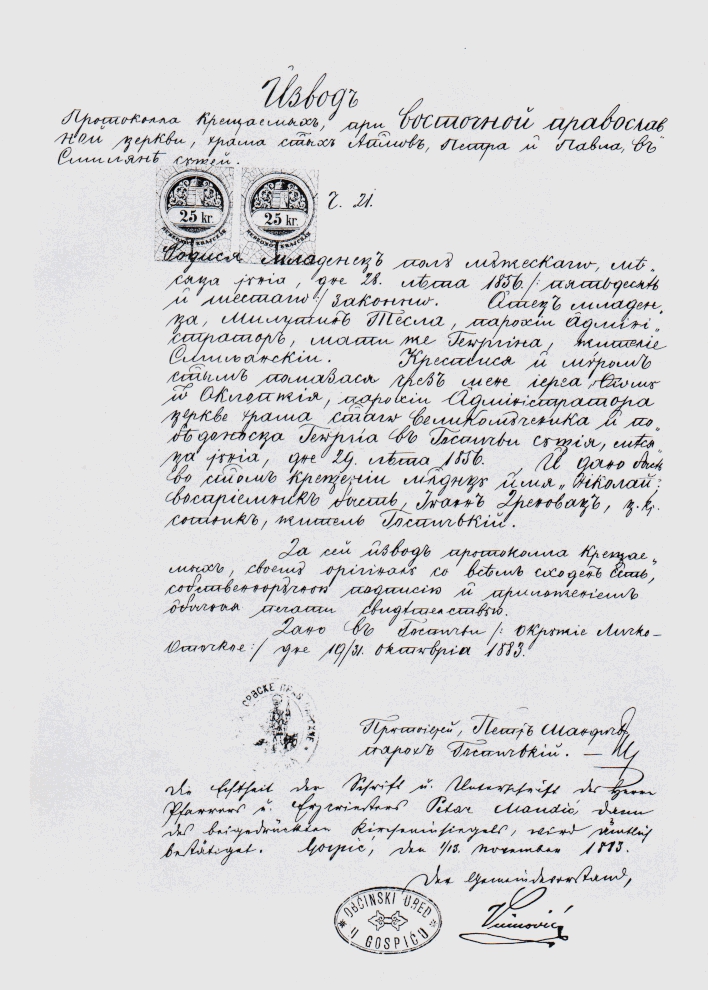 Изводъ
Протоколла крещаемыхъ, при восточной православ
ной церкви, храма стыхъ Апловъ, Петра и Павла, въ
Смилянѣ сущей.
25 kr. 25 kr. Ч. 21.
Родися младенецъ полꙋ мꙋжескагѡ, мѣ„
сяца іꙋніа, дне 28. лѣта 1856./: пятьдесятъ
и шестагѡ:/ законнѡ. Отецъ младен„
ца, Милутинъ Тесла, парохіи Адміні„
страторъ, мати же Георгіна, жителіе
Смилянскіи. Крестися и мѵромъ
стымъ помазася чрезъ мене іереа Ѳому
Оклопжія, парохіи Адміністратора
церкве храма стагѡ великомꙋченика и по„
бѣдоносца Георгіа въ Госпичьи сущія, мѣся„
ца іꙋніа, дне 29. лѣта 1856. И дано бысть
во стомъ крещеніи млднцꙋ имя „Николай:
воспріемникъ бысть, Іѡаннъ Дреновацъ, ц. кр.
сотникъ, житель Госпичькій.
За сей изводъ протоколла крещае„
мыхъ, своемꙋ орігіналꙋ со всѣмъ сходенъ есть,
собственнорꙋчною подписію и приложеніемъ
обычныя печати свидѣтелствꙋю.
Дано въ Госпичьи /: окружіе Личко-
Оточкое:/ дне 19/31. октѡвріа 1883.
Протоіерей, Петръ Мандичъ
парохъ Госпичькій.
Die Echtheit der Schrift u. Unterschrift des Herrn
Pfarrers u. Erzpriesters Petar Mandić dann
des beigedrückten Kirchensiegels, wird ämtlich
bestätiget. Gospić, den 1/13. November 1883.
Der Gemeindevorstand,
OBĆINSKI URED
U GOSPIĆU